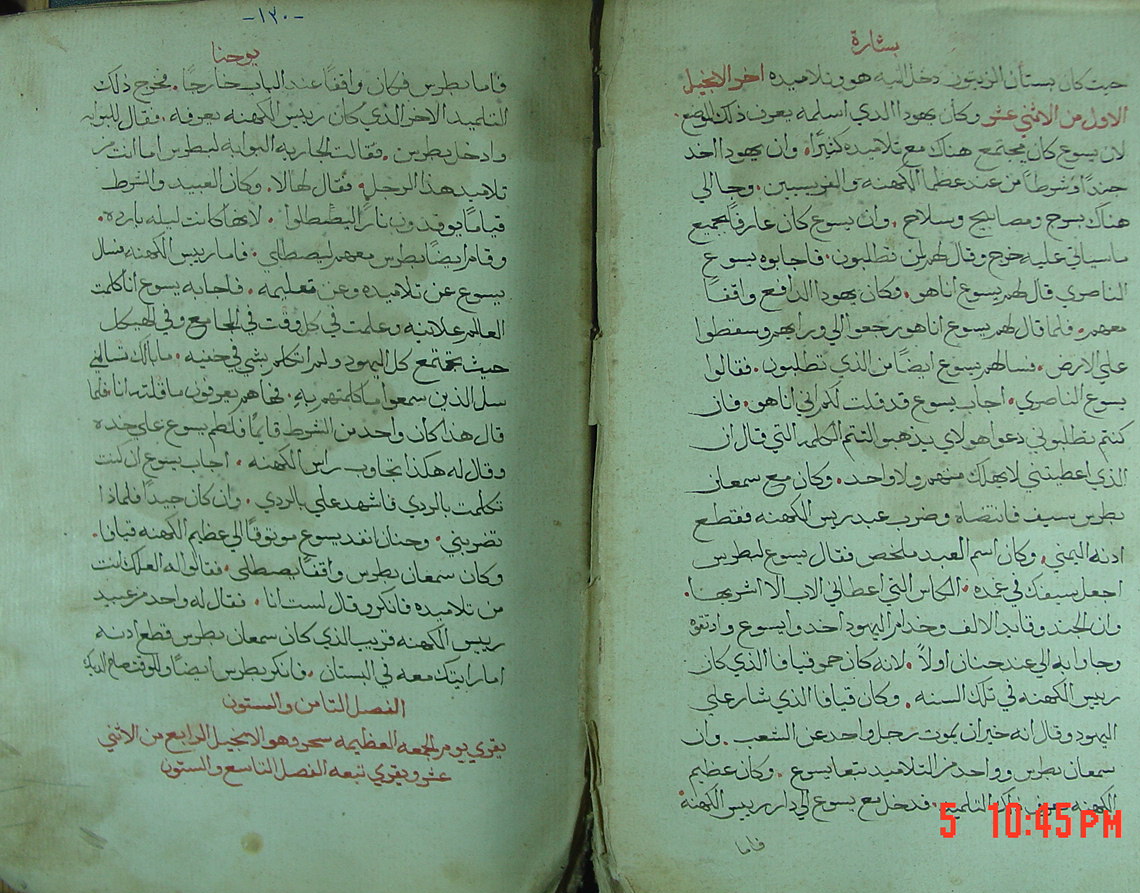 بشارة
حيث كان بستان الزيتون دخل اليه هو وتلاميذه اخر الانجيل
الاول من الاثني عشر وكان يهودا الدي اسلمه يعرف ذلك الموضع
لان يسوع كان يجتمع هناك مع تلاميذه كثيرًا. وان يهودا اخد
جندًا وشرطًا من عند عظما الكهنه والفريسيين. وجا الي
هناك بسرج ومصابيح وسلاح. وان يسوع كان عارفًا بجميع
ماسياتي عليه خرج وقال لهم لمن تطلبون. فاجابوه يسوع
الناصري قال لهم يسوع اناهو. وكان يهودا الدافع واقفًا
معهم. فلما قال لهم يسوع اناهو رجعوا الي ورايهم وسقطوا
علي الارض. فسالهم يسوع ايضًا من الذي تطلبون. فقالوا
يسوع الناصري. اجاب يسوع قد قلت لكم اني اناهو. فان
كنتم تطلبوني دعوا هولاي يذهبوا لتتم الكلمه التي قال ان
الذي اعطيتني لا يهلك منهم ولا واحد. وكان مع سمعان
بطرس سيف فانتضاه وضرب عبد ريس الكهنه فقطع
ادنه اليمني. وكان اسم العبد ملخص فقال يسوع لبطرس
اجعل سيفك في غمده. الكاس التي اعطاني الاب الا اشربها.
وان الجند وقايد الالف وخدام اليهود اخدوا يسوع واوثقوه
وجاوا به الي عند حنان اولاً. لانه كان حمو قيافا الذي كان
رييس الكهنه في تلك السنه. وكان قيافا الذي شار علي
اليهود وقال انه خير ان يموت رجل واحد عن الشعب. وان
سمعان بطرس وواحد من التلاميد تبعا يسوع. وكان عظيم
الكهنه يعرف ذلك التلميد. فدخل مع يسوع الي دار رييس الكهنه
فاما
5 10:45 PM
-١٢٠-
يوحنا
فاما بطرس فكان واقفًا عند الباب خارجًا. فخرج ذلك
التلميد الاخر الذي كان رييس الكهنه يعرفه. فقال للبوابه
وادخل بطرس. فقالت الجاريه البوابه لبطرس اما انت من
تلاميد هذا الرجل. فقال لها لا. وكان العبيد والشرط
قيامًا يوقدون نارًا ليصطلوا. لانها كانت ليله بارده.
وقام ايضًا بطرس معهم ليصطلي. فاما رييس الكهنه فسال
يسوع عن تلاميده وعن تعليمه. فاجابه يسوع انا كلمت
العالم علانيه وعلمت في كل وقت في الجامع وفي الهيكل
حيث يجتمع كل اليهود ولم اتكلم بشي في خفيه. ما بالك تسالني
سل الذين سمعوا ما كلمتهم به. فها هم يعرفون ما قلته انا. فلما
قال هذا كان واحد من الشرط قايمًا فلطم يسوع علي خده
وقال له هكذا تجاوب راس الكهنه. اجاب يسوع ان كنت
تكلمت بالردي فاشهد علي بالردي. وان كان جيدًا فلماذا
تضربني. وحنان انفد يسوع موثوقًا الي عظيم الكهنه قيافا.
وكان سمعان بطرس واقفًا يصطلي. فقالوا له العلك انت
من تلاميده فانكر وقال لست انا. فقال له واحد من عبيد
رييس الكهنه قريب الذي كان سمعان بطرس قطع ادنه
اما رايتك معه في البستان. فانكر بطرس ايضًا وللوقت صاح الديك
الفصل الثامن والستون
يقري يوم الجمعه العظيمه سحر وهو الانجيل الرابع من الاثني
عشر ويقري تبعه الفصل التاسع والستون